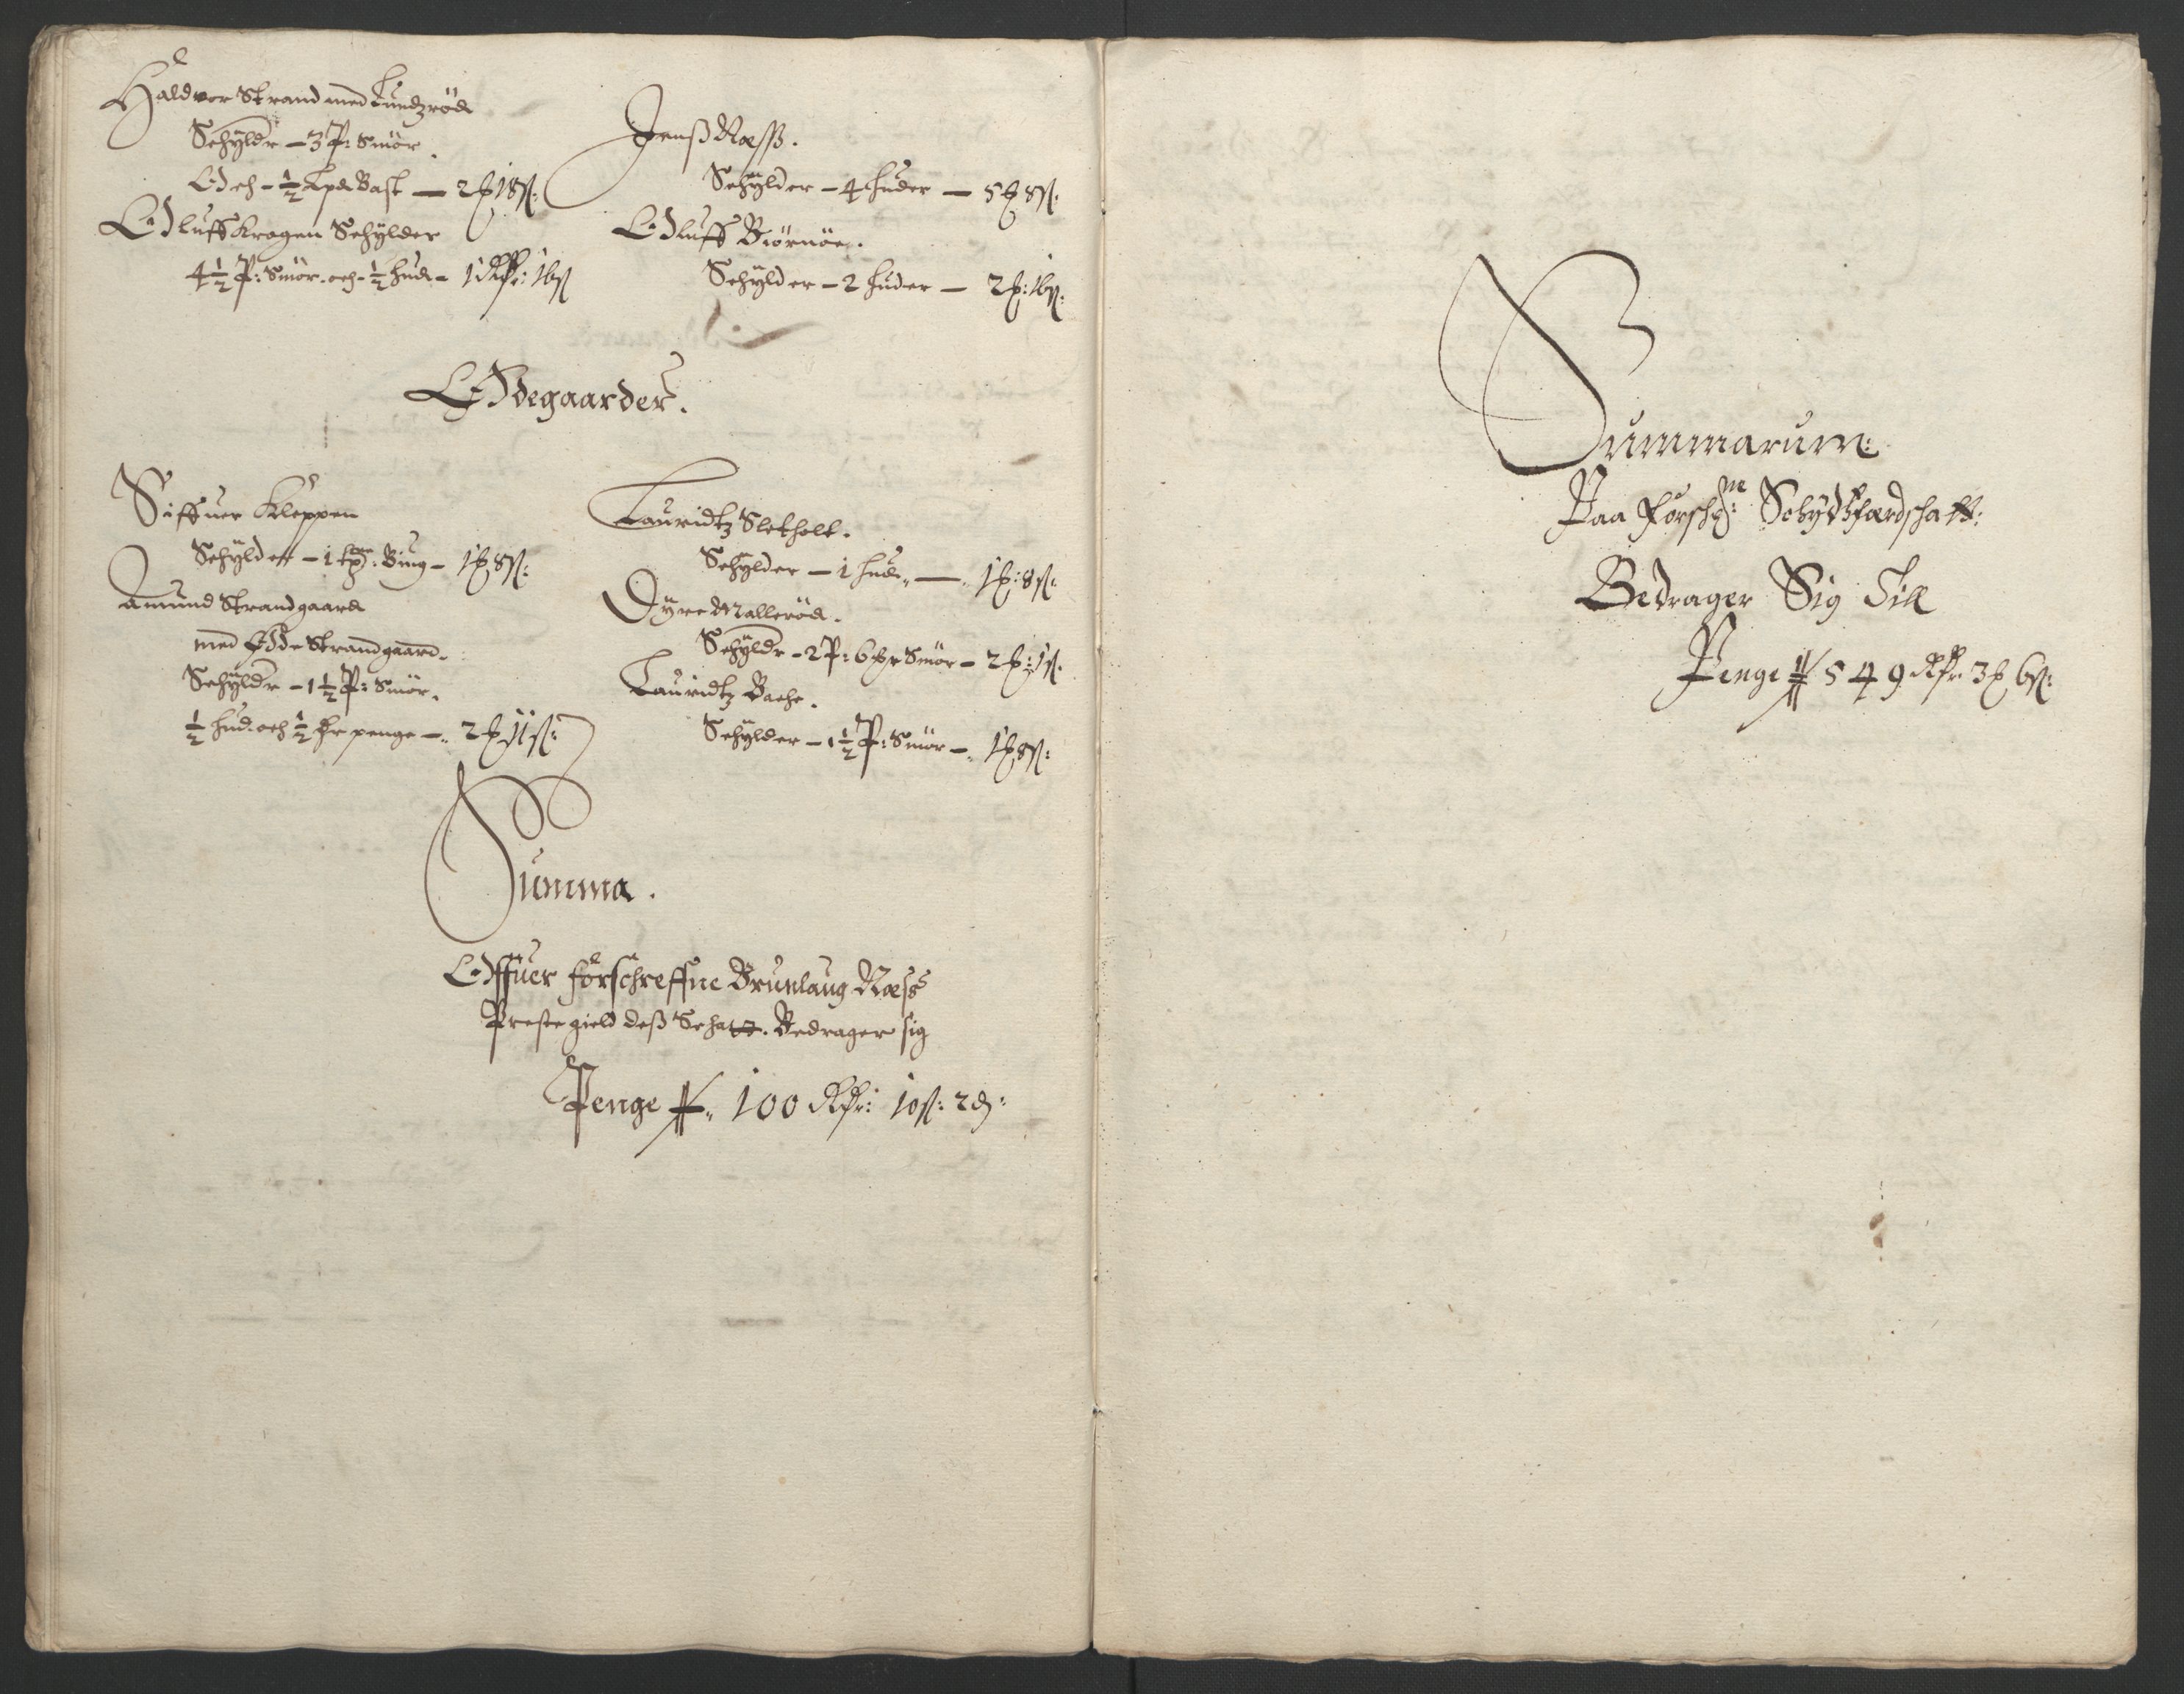 Haldvor Strand med Lundzröd
Schyldr – 3 P: Smör.
Och – ½ Lpd Bast — 2 ꝑ 18 ß:
Oluff Krogen Schylder
4½ P: Smör. och – ½ hud – 1 Rdr: 16 ß
Jenß Næss.
Schylder – 4 huder — 5 ꝑ 8 ß.
Oluff Biörnöe.
Schylder – 2 huder — 2 ꝑ: 16 ß:
Ödegaarder.
Siffuer Kleppen
Schylder – 1 tp: Biug – 1 ꝑ 8 ß:
Amund Strandgaard
med Øde Strandgaard.
Schyldr – 1½ P: Smör.
½ hud. och ½ hr penge – 2 ꝑ 11 ß:
Lauridtz Sletholt.
Schylder – 1 hud — 1 ꝑ: 8 ß:
Dyre Malleröd.
Schyldr – 2 P: 6 Mr Smör – 2 ꝑ: 1 ß.
Lauridtz Bache.
Schylder – 1½ P: Smör – 1 ꝑ 8 ß:
Summa.
Offuer forschreffne Brunlaug Næss
Prestegield deß Schatt. Bedrager sig
Penge 100 Rdr: 10 ß: 2 d:
Summarum:
Paa forschne: Schydtzfærdschatt:
Bedrager Sig Till
Penge 549 Rdr 3 ꝑ 6 ß: